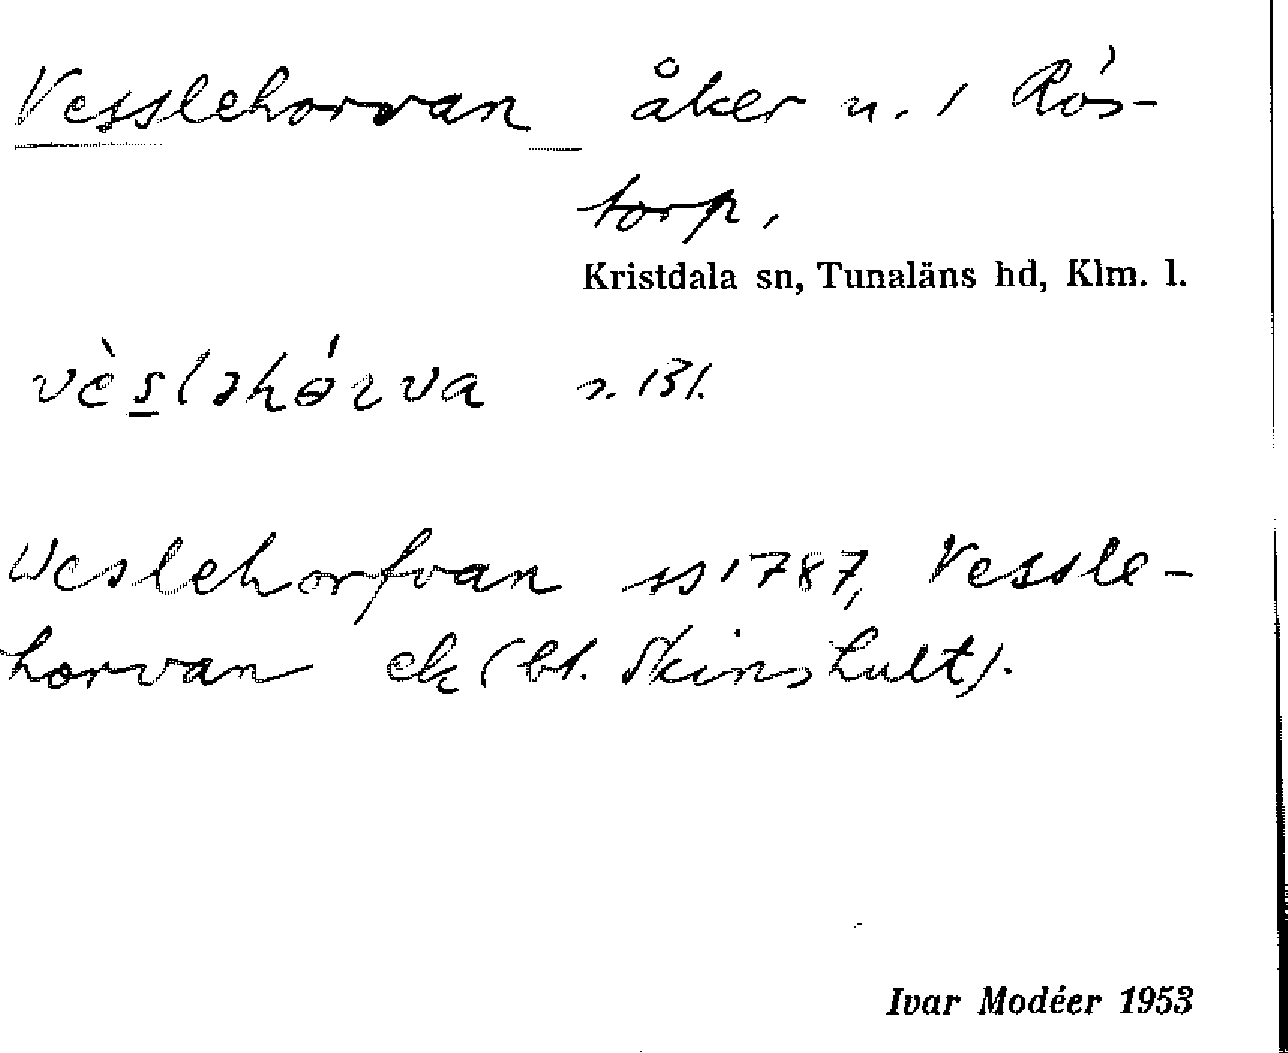 Vesslehorvan åker n. 1 Rós-
torp.
Kristdala sn, Tunaläns hd, Klm. l.
vèsləhɵ́rva s. 131.
Weslehorfvan ss 1787, Vessle-
horvan ek (bl. Skinshult).
Ivar Modéer 1953